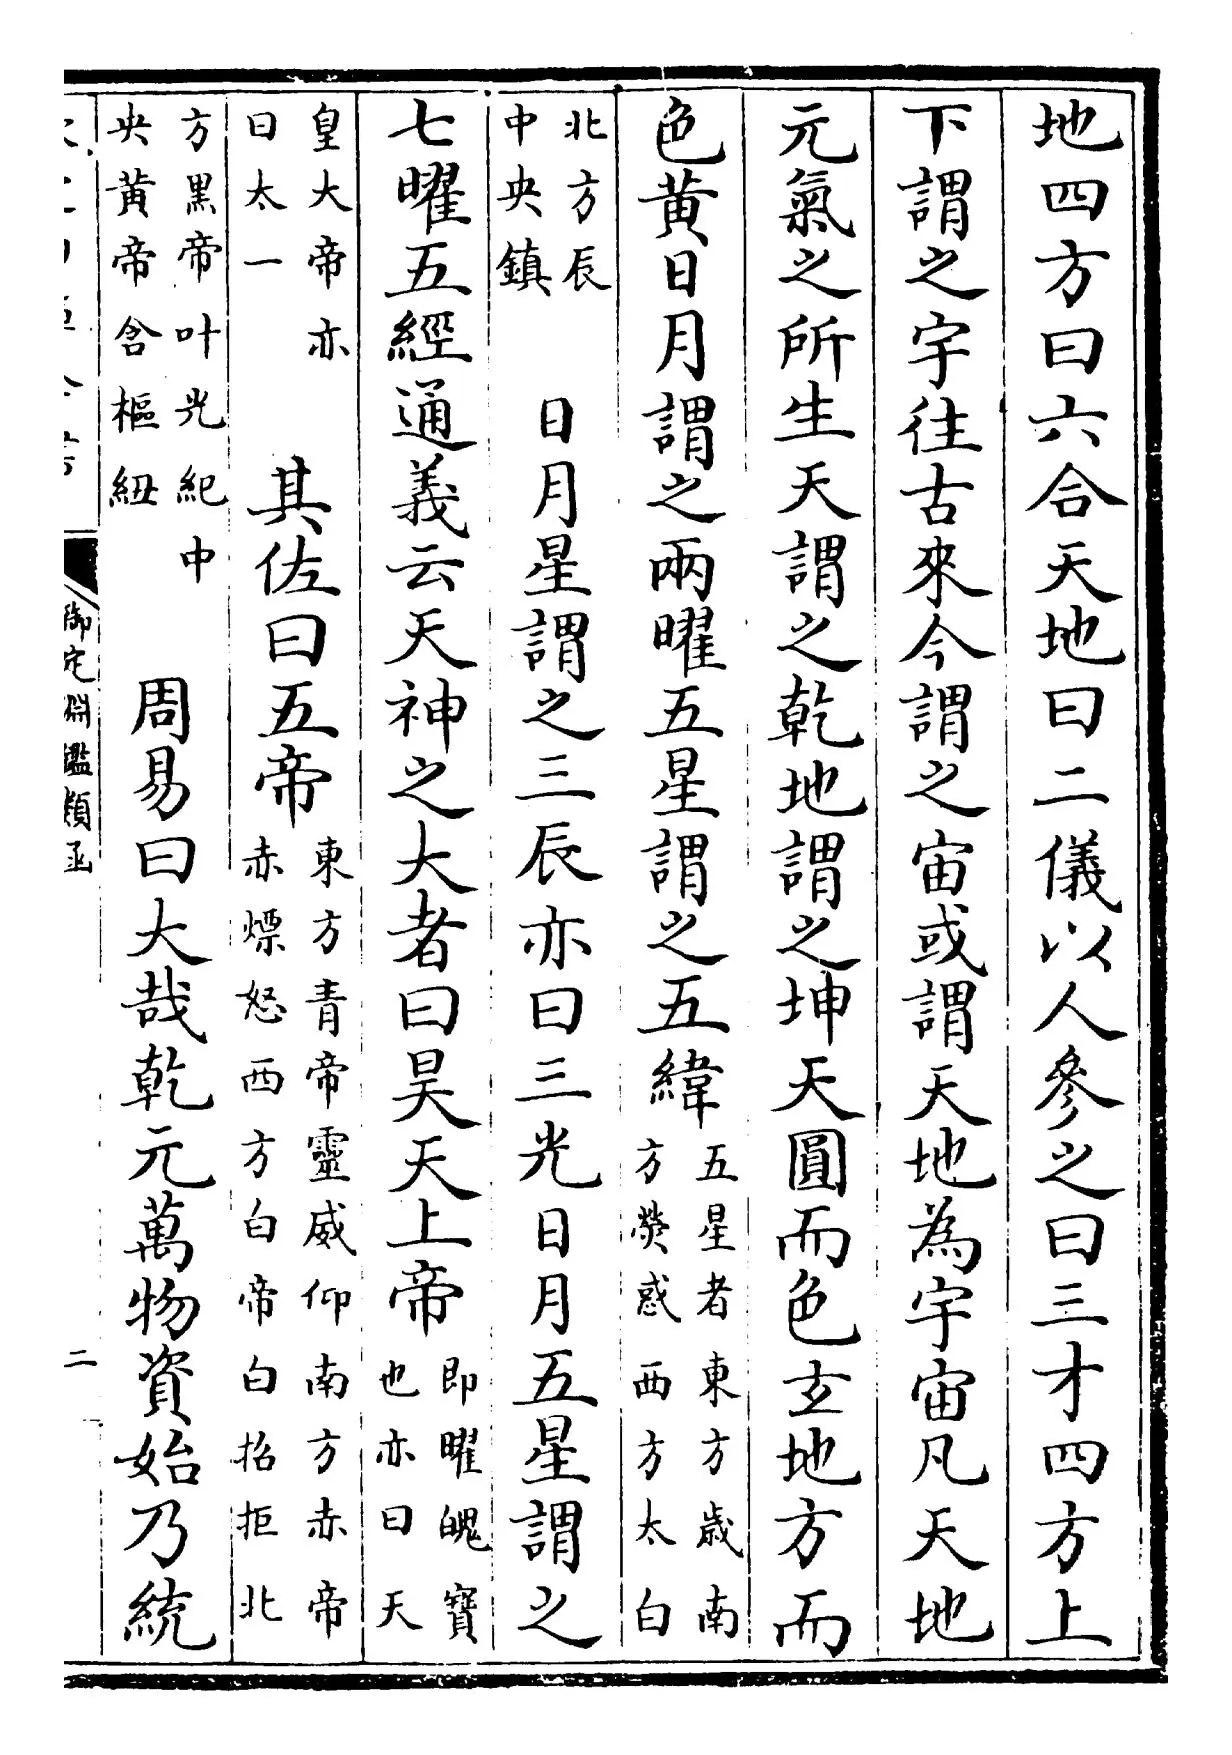 地四方曰六合天地曰二儀以人參之曰三才四方上
下謂之宇往古來今謂之宙或謂天地為宇宙凡天地
元氣之所生天謂之乾地謂之坤天圓而色玄地方而
色黃日月謂之兩曜五星謂之五緯五星者東方歲南方熒惑西方太白
北方辰中央鎮日月星謂之三辰亦曰三光日月五星謂之
七曜五經通義云天神之大者曰昊天上帝即曜魄寶也亦曰天
皇大帝亦曰太一其佐曰五帝東方青帝靈威仰南方赤帝赤熛怒西方白帝白招拒北
方黑帝叶光紀中央黃帝含樞紐周易曰大哉乾元萬物資始乃統
御定淵鑑類函
二